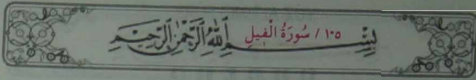 ١٠٥ / سُورَةُ الْفِيلِ
بِسْمِ اللّٰهِ الرَّحْمٰنِ الرَّحِيمِ